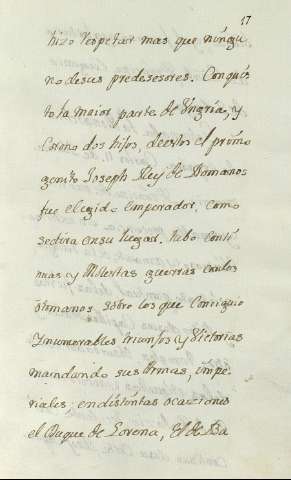 17
hizo respetar mas que ningu
no desus predesesores. Conquis
to la maior parte de Ungria, y
Corono dos hijos, de estos el primo
genito Joseph Rey de Romanos
fue elegido emperador, como
sedira en su lugar. tubo conti
nuas y Molestas guerras con los
otomanos sobre los que consiguio
Ynumerables triunfos y Victorias
mandando sus Armas, impe
riales, en distintas ocaciones
el Duque de Lorena, El de Ba